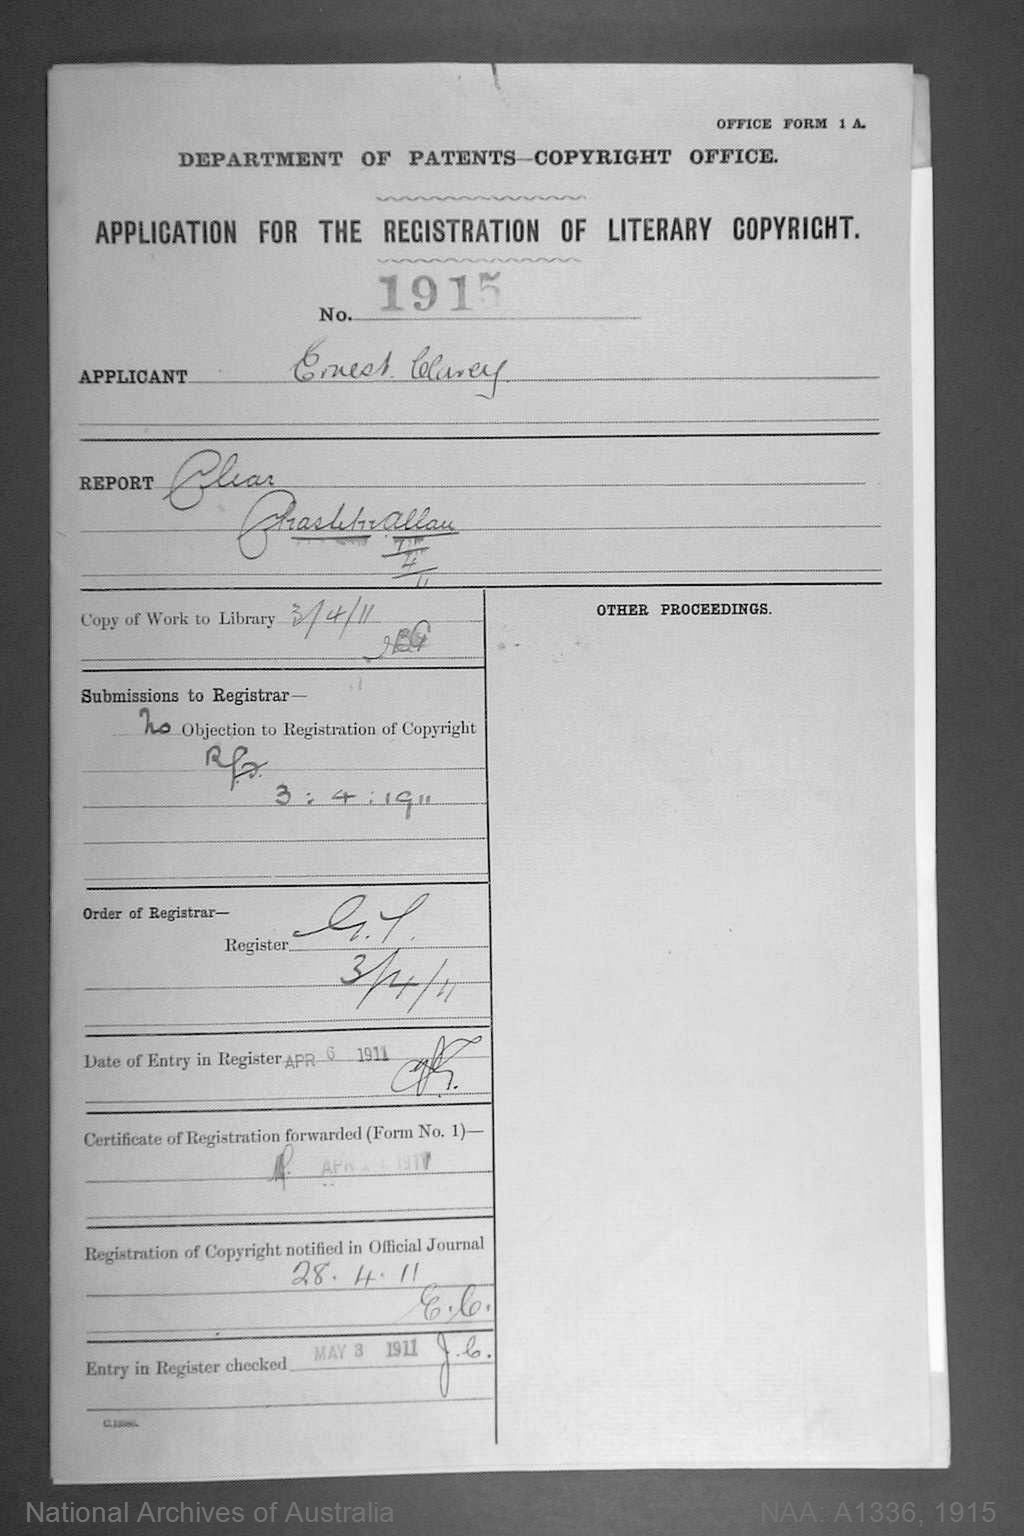 OFFICE FORM 1 A.
DEPARTMENT OF PATENTS—COPYRIGHT OFFICE.
APPLICATION FOR THE REGISTRATION OF LITERARY COPYRIGHT.
No. 1915
APPLICANT Ernest
REPORT Clear
Allan
4
11
Copy of Work to Library 3/4/11
Submissions to Registrar—
No Objection to Registration of Copyright
3:4:1911
Order of Registrar—
Register G.T.
3/4/11
Date of Entry in Register APR 6 1911
Certificate of Registration forwarded (Form No. 1)—
APR 1911
Registration of Copyright notified in Official Journal
28.4.11
E.C.
Entry in Register checked MAY 3 1911 J.C.
OTHER PROCEEDINGS.
National Archives of Australia
NAA: A1336, 1915